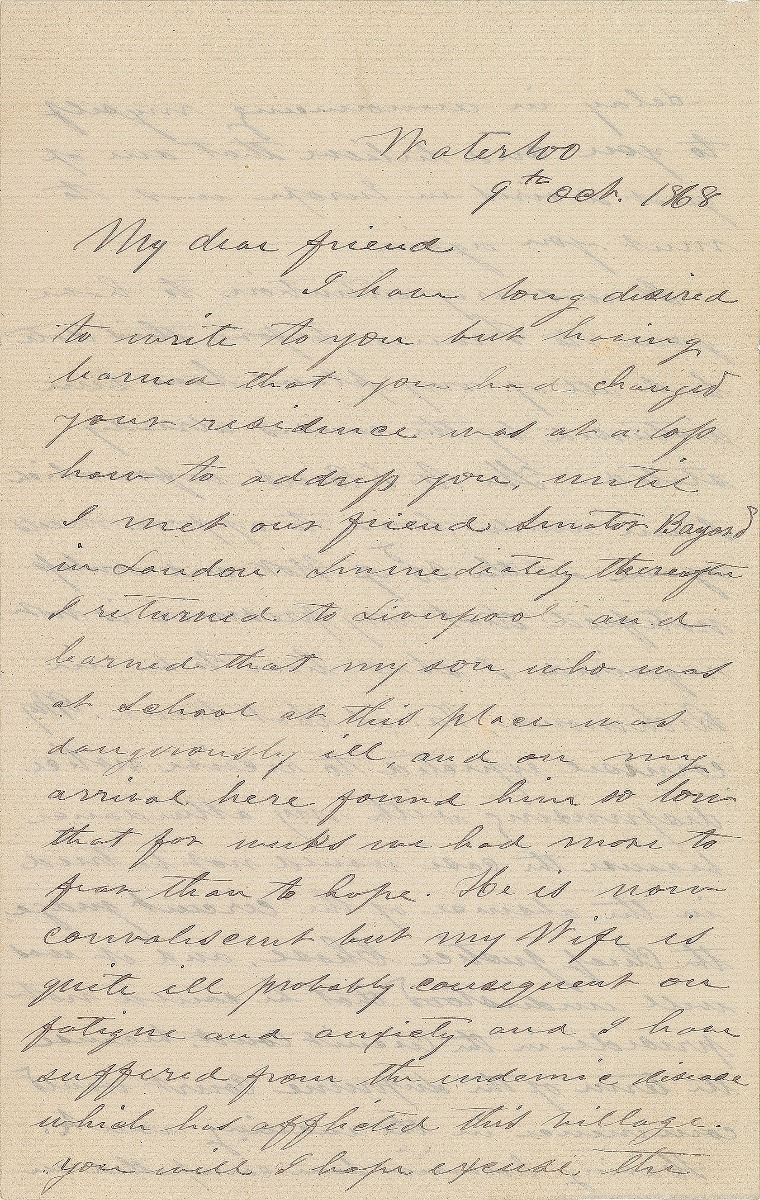 Waterloo
9th Oct. 1868
My dear friend
I have long desired
to write to you but having
learned that you had changed
your residence was at a loss
how to address you, until
I met our friend Senator Bayard
in London. Immediately thereafter
I returned to Liverpool and
learned that my son who was
at school at this place was
dangerously ill and on my
arrival here found him so low
that for weeks we had more to
fear than to hope. He is now
convalescent but my Wife is
quite ill probably consequent on
fatigue and anxiety and I have
suffered from the endemic disease
which has afflicted this village.
you will I hope excuse the